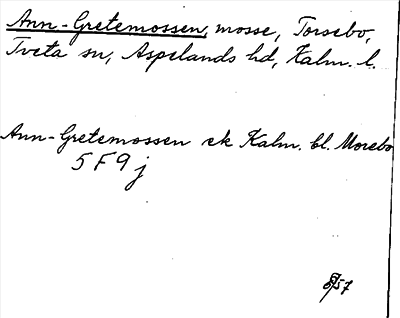 Ann-Gretemossen, mosse, Torsebo,
Tveta sn, Aspelands hd, Kalm. l.
Ann-Gretemossen ek Kalm. bl. Morebo
5 F 9 j